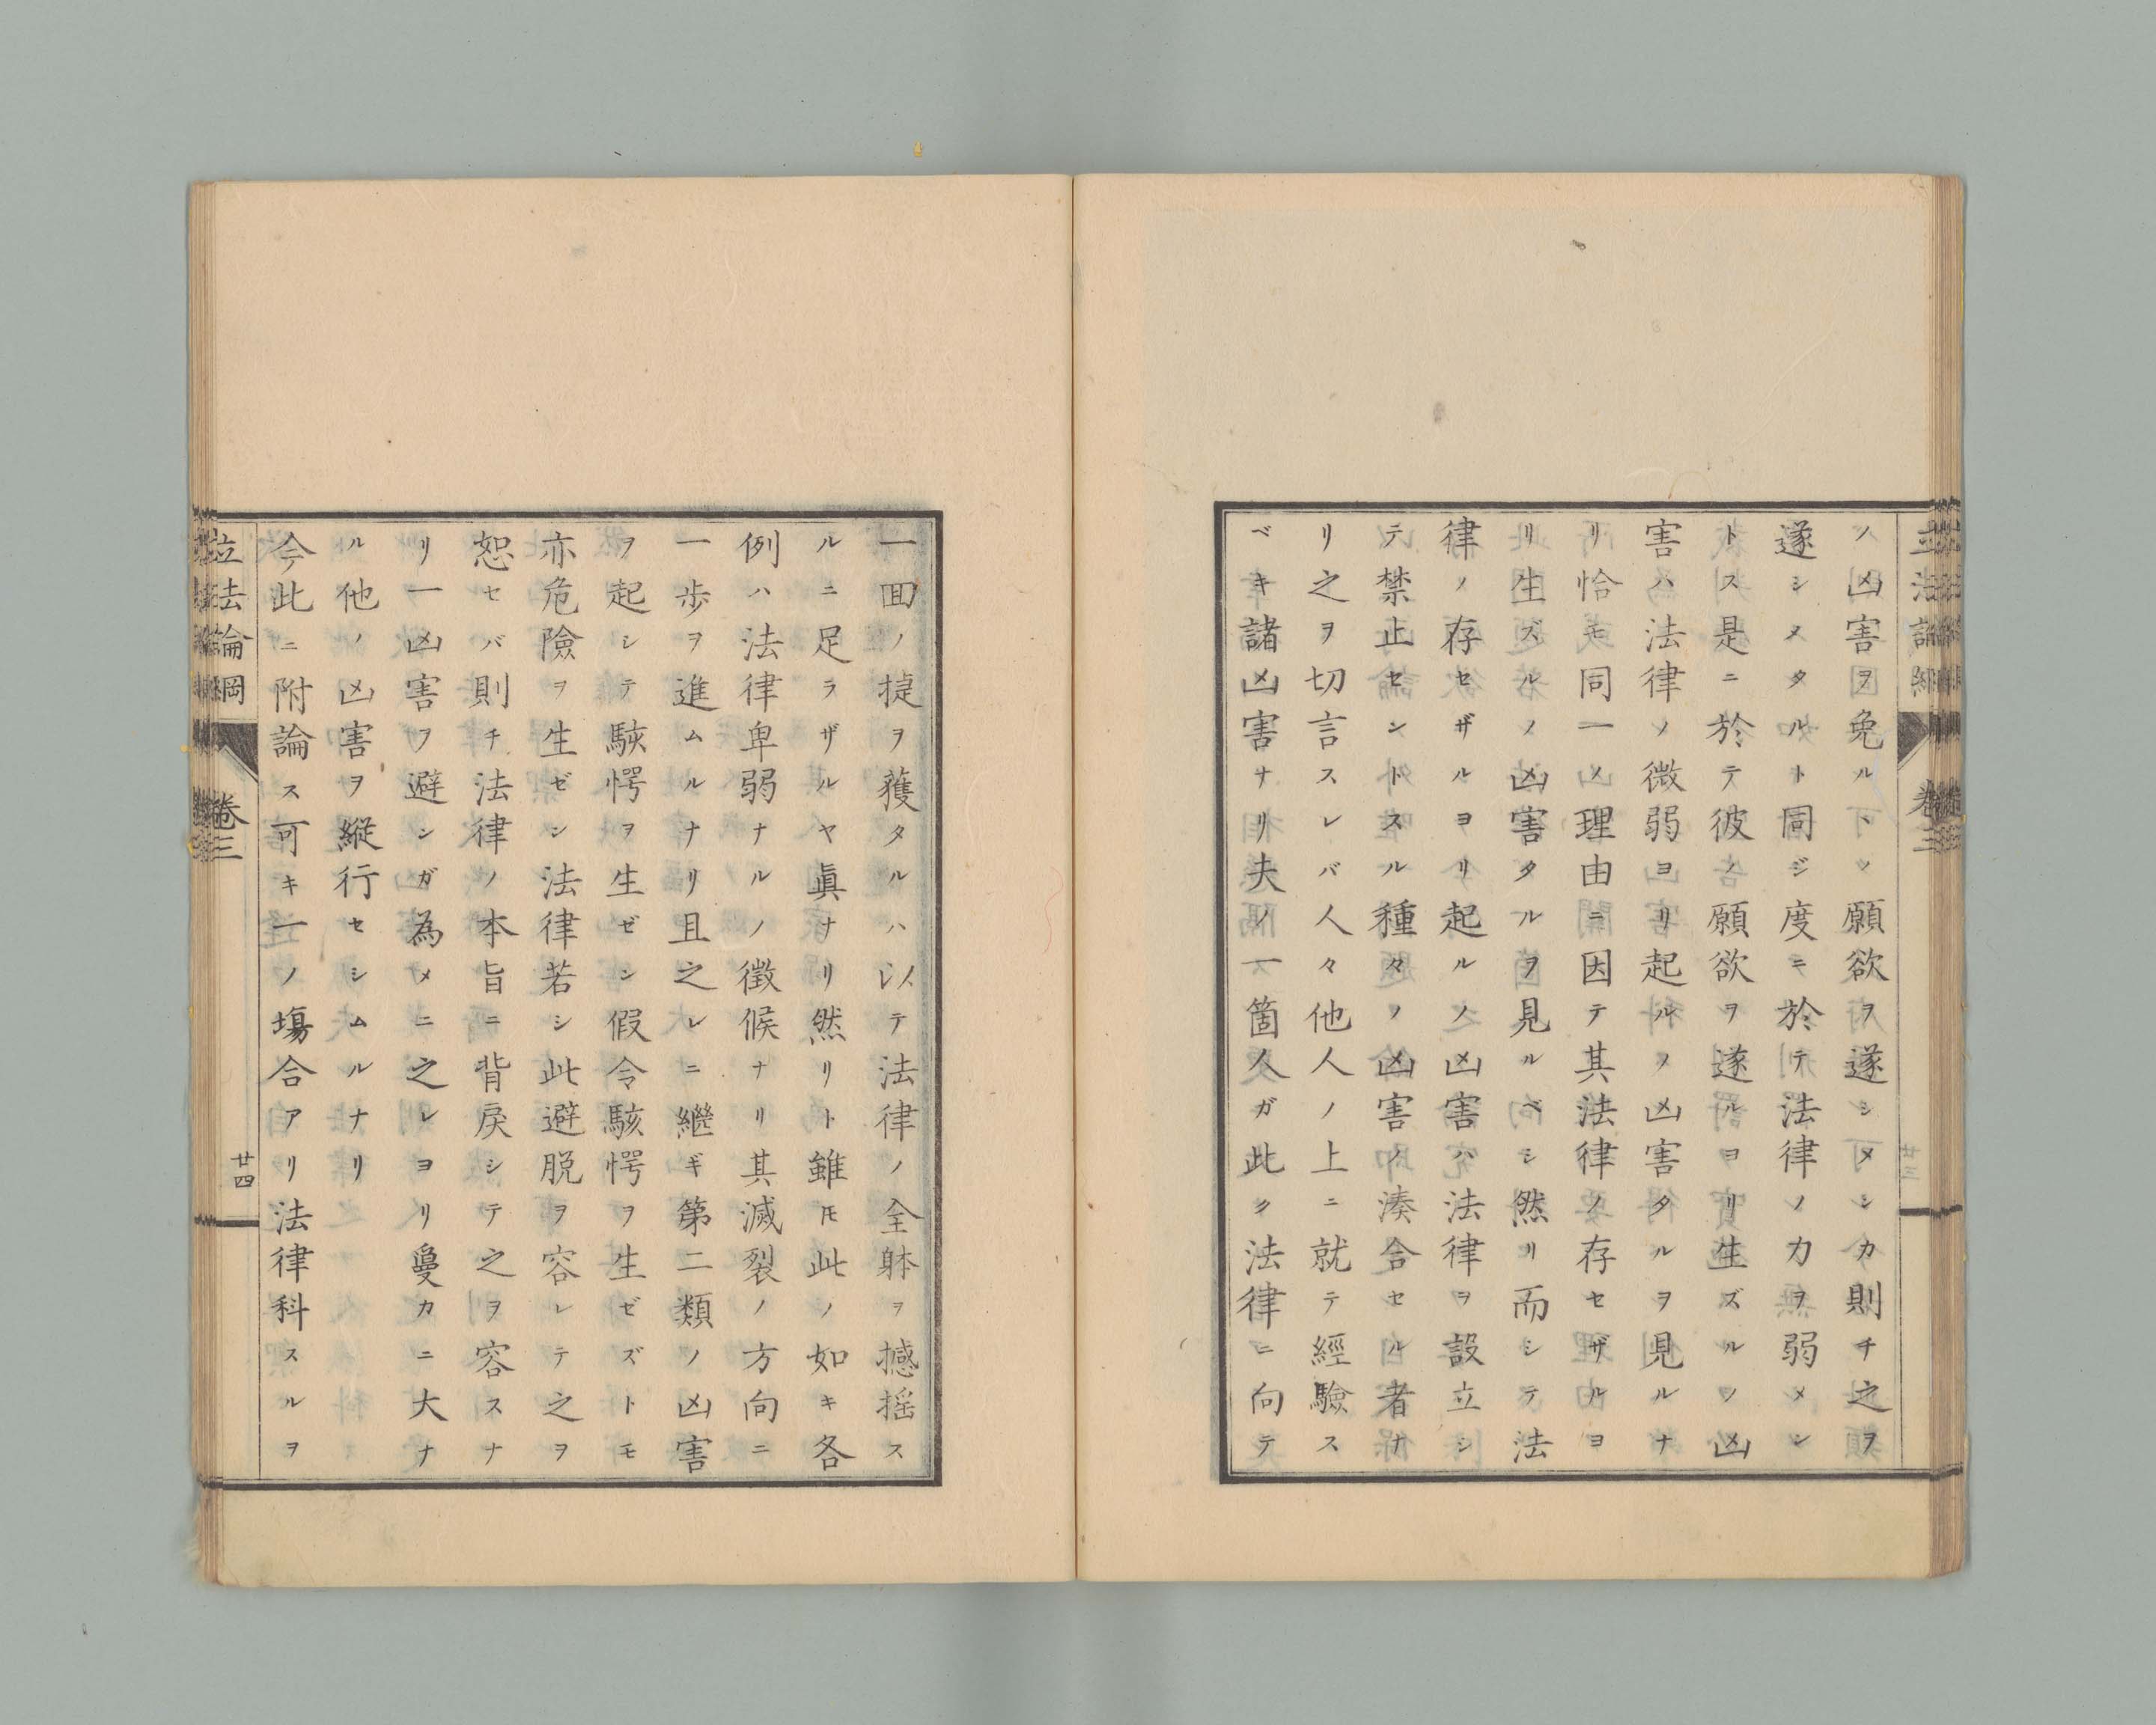 立法論綱
卷三
廿三
ノ凶害ヲ免ルヽヿ願欲ヲ遂シメシカ則チ之ヲ
遂シメタルト同ジ度ニ於テ法律ノ力ヲ弱メン
トス是ニ於テ彼ノ願欲ヲ遂ルヨリ生ズルノ凶
害ハ法律ノ微弱ヨリ起ルノ凶害タルヲ見ルナ
リ恰モ同一ノ理由ニ因テ其法律ノ存セザルヨ
リ生ズルノ凶害タルヲ見ルベシ然リ而シテ法
律ノ存セザルヨリ起ルノ凶害ハ法律ヲ設立シ
テ禁止セントスル種々ノ凶害ノ湊合セル者ナ
リ之ヲ切言スレバ人々他人ノ上ニ就テ經驗ス
ベキ諸凶害ナリ夫ノ一箇人ガ此ク法律ニ向テ
一囬ノ捷ヲ獲タルハ以テ法律ノ全躰ヲ撼揺ス
ルニ足ラザルヤ眞ナリ然リト雖𪜈此ノ如キ各
例ハ法律卑弱ナルノ徴候ナリ其滅裂ノ方向ニ
一歩ヲ進ムルナリ且之レニ繼ギ第二類ノ凶害
ヲ起シテ駭愕ヲ生ゼン假令駭愕ヲ生ゼズトモ
亦危險ヲ生ゼン法律若シ此避脱ヲ容レテ之ヲ
恕セバ則チ法律ノ本旨ニ背戻シテ之ヲ容スナ
リ一凶害ヲ避ンガ為メニ之レヨリ敻カニ大ナ
ル他ノ凶害ヲ縦行セシムルナリ
今此ニ附論ス可キ一ノ塲合アリ法律科スルヲ
立法論綱
卷三
廿四